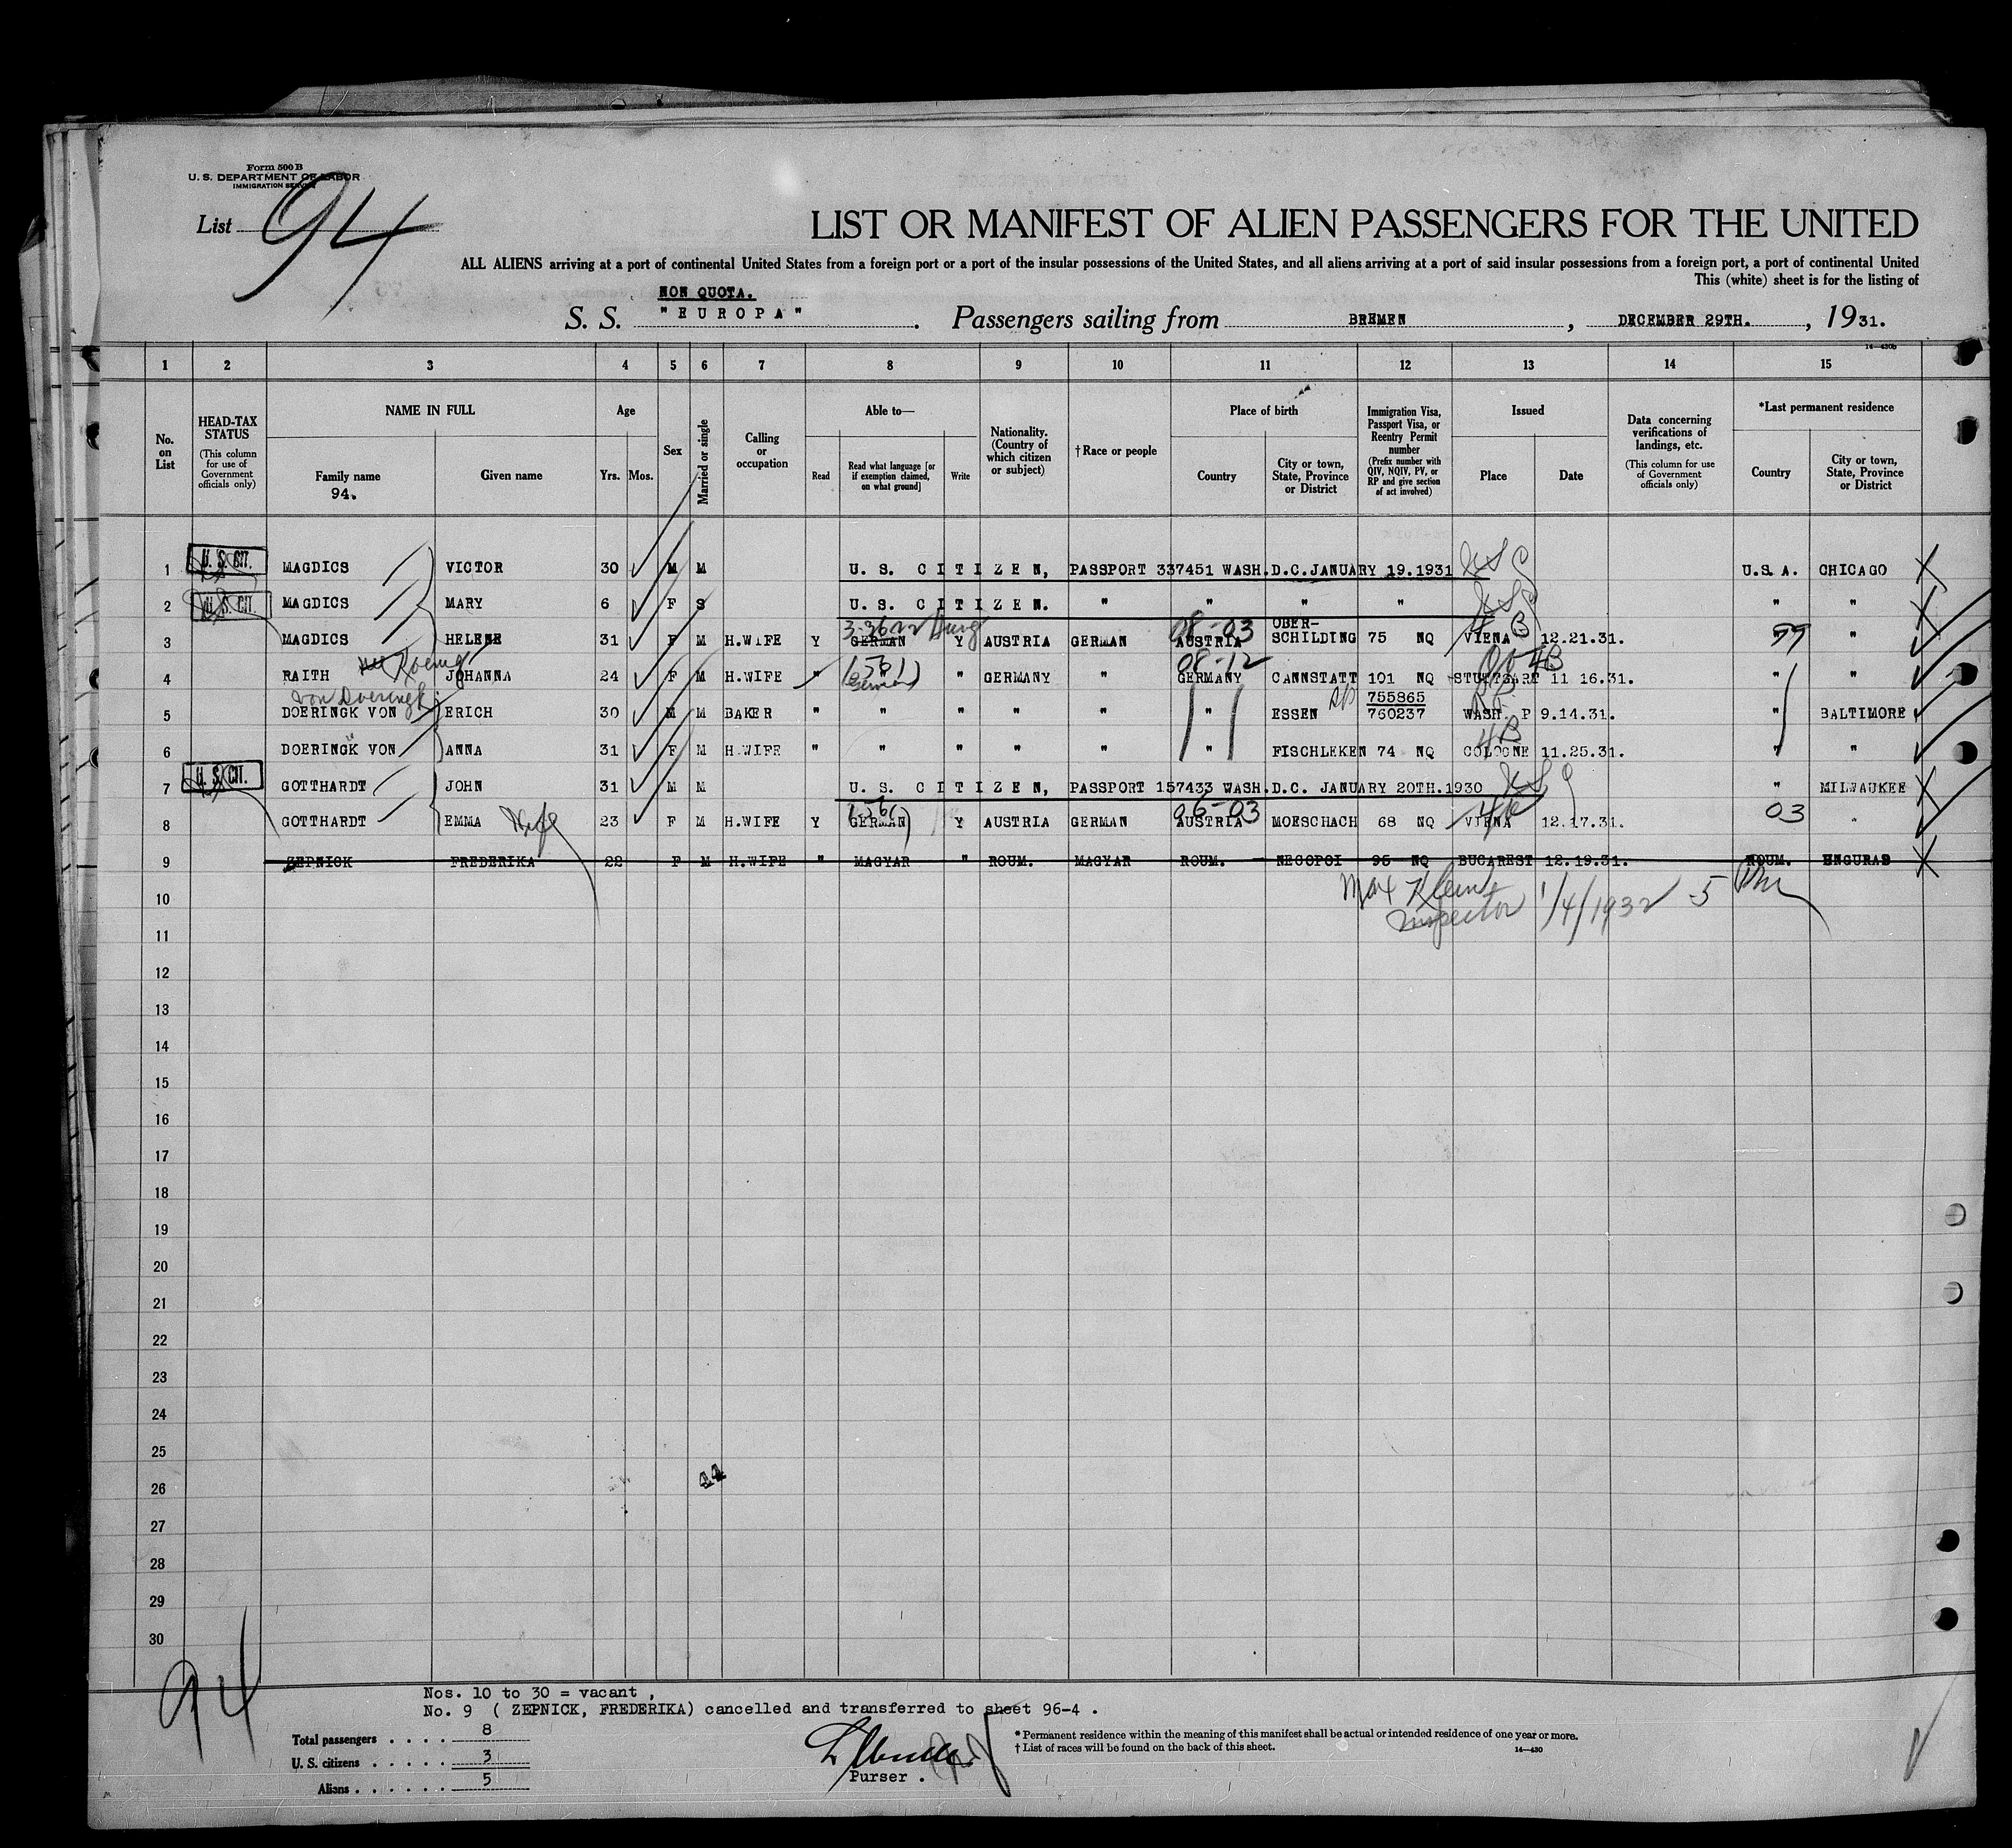 Form 500 B
U. S. DEPARTMENT OF LABOR
IMMIGRATION SERVICE
List 94
LIST OR MANIFEST OF ALIEN PASSENGERS FOR THE UNITED
ALL ALIENS arriving at a port of continental United States from a foreign port or a port of the insular possessions of the United States, and all aliens arriving at a port of said insular possessions from a foreign port, a port of continental United
This (white) sheet is for the listing of
NON QUOTA.
S. S. "EUROPA". Passengers sailing from BREMEN, DECEMBER 29TH., 1931.
14—430b
1 2 3 4 5 6 7 8 9 10 11 12 13 14 15
No. on List
HEAD-TAX STATUS (This column for use of Government officials only)
NAME IN FULL
Family name
94.
Given name
Age
Yrs. Mos.
Sex
Married or single
Calling or occupation
Able to—
Read
Read what language [or if exemption claimed, on what ground]
Write
Nationality. (Country of which citizen or subject)
†Race or people
Place of birth
Country
City or town, State, Province or District
Immigration Visa, Passport Visa, or Reentry Permit number (Prefix number with QIV, NQIV, PV, or RP and give section of act involved)
Issued
Place
Date
Data concerning verifications of landings, etc. (This column for use of Government officials only)
*Last permanent residence
Country
City or town, State, Province or District
1 U. S. CIT. MAGDICS VICTOR 30 M M U. S. CITIZEN, PASSPORT 337451 WASH.D.C.JANUARY 19.1931 USC U.S.A. CHICAGO
2 U. S. CIT. MAGDICS MARY 6 F S U. S. CITIZEN. " " " " USC " "
3-3622 Hung 08-03 OBER- 4B
3 MAGDICS HELENE 31 F M H.WIFE Y GERMAN Y AUSTRIA GERMAN AUSTRIA SCHILDING 75 NQ VIENA 12.21.31. " 99 "
Koenig (561) 08-12 4B
4 RAITH JOHANNA 24 F M H.WIFE " German " GERMANY " GERMANY CANNSTATT 101 NQ STUTTGART 11 16.31. " "
von Doeringk 755865
5 DOERINGK VON ERICH 30 M M BAKER " " " " " " ESSEN 760237 WASH. P 9.14.31. " BALTIMORE
4B
6 DOERINGK VON ANNA 31 F M H.WIFE " " " " " " FISCHLEKEN 74 NQ COLOGNE 11.25.31. " "
7 U. S. CIT. GOTTHARDT JOHN 31 M M U. S. CITIZEN, PASSPORT 157433 WASH.D.C. JANUARY 20TH.1930 USC " MILWAUKEE
(561) 06-03 03
8 GOTTHARDT EMMA Wife 23 F M H.WIFE Y GERMAN Y AUSTRIA GERMAN AUSTRIA MOESCHACH 68 NQ VIENA 12.17.31. "
9 ZEPNICK FREDERIKA 22 F M H.WIFE " MAGYAR " ROUM. MAGYAR ROUM. NEGOPOI 95 NQ BUCAREST 12.19.31. ROUM. UNGURAS
Max Klein
10 Inspector 1/4/1932 5
11
12
13
14
15
16
17
18
19
20
21
22
23
24
25
26 44
27
28
29
30
94
Nos. 10 to 30 = vacant ,
No. 9 ( ZEPNICK, FREDERIKA) cancelled and transferred to sheet 96-4 .
Total passengers . . . . 8
U. S. citizens . . . . . 3
Aliens . . . . . . 5
Purser .
* Permanent residence within the meaning of this manifest shall be actual or intended residence of one year or more.
† List of races will be found on the back of this sheet.
14—430